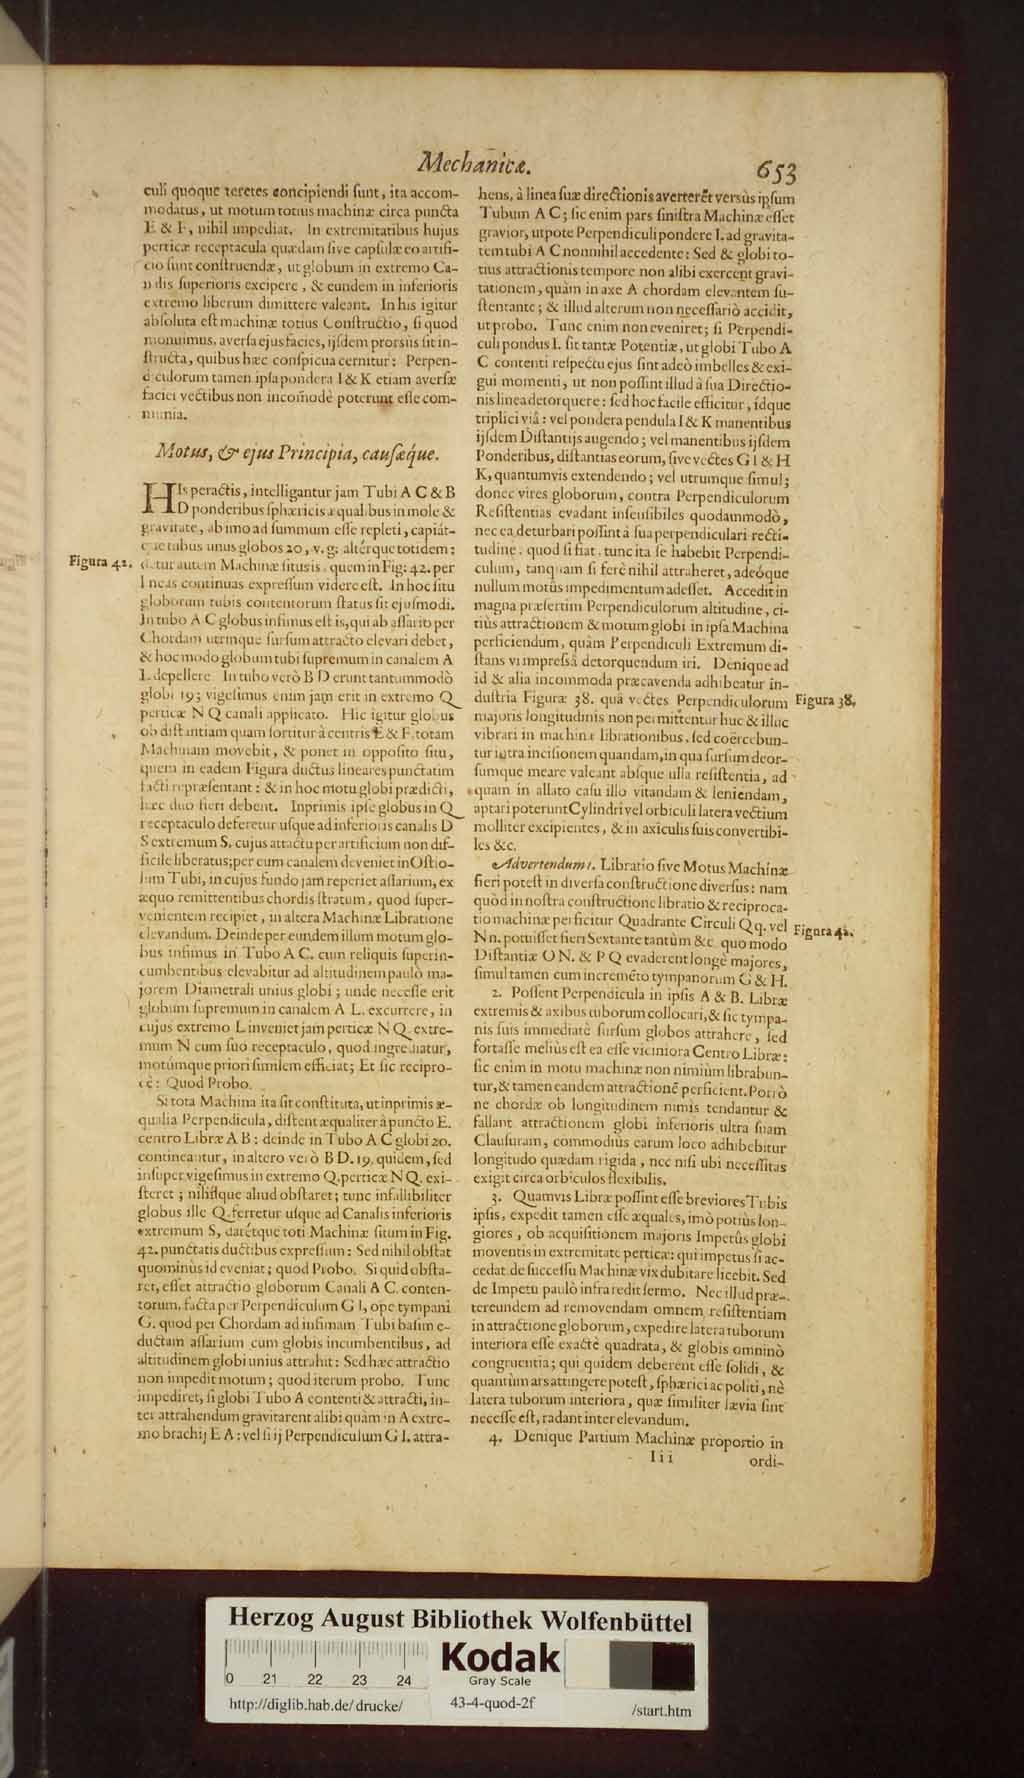 Mechanicæ.
653
culi quoque teretes concipiendi ſunt, ita accom-
modatus, ut motum totius machinæ circa puncta
E & F, nihil impediat. In extremitatibus hujus
perticæ receptacula quædam ſive capſulæ eo artifi-
cio ſunt conſtruendæ, ut globum in extremo Ca-
nalis ſuperioris excipere, & eundem in inferioris
extremo liberum dimittere valeant. In his igitur
abſoluta eſt machinæ totius Conſtructio, ſi quod
monuimus, averſa ejus facies, ijſdem prorsùs ſit in-
ſtructa, quibus hæc conſpicua cernitur: Perpen-
diculorum tamen ipſa pondera I & K etiam averſæ
faciei vectibus non incom̃odè poterunt eſſe com-
munia.
Motus, & ejus Principia, cauſæque.
HIs peractis, intelligantur jam Tubi A C & B
D ponderibus ſphæricis æqualibus in mole &
gravitate, ab imo ad ſummum eſſe repleti, capiát-
que tubus unus globos 20, v. g; altérque totidem:
Figura 42.
detur autem Machinæ ſitus is, quem in Fig: 42. per
lineas continuas expreſſum videre eſt. In hoc ſitu
globorum tubis contentorum ſtatus ſit ejuſmodi.
In tubo A C globus infimus eſt is, qui ab aſſario per
Chordam utrinque ſurſum attracto elevari debet,
& hoc modo globum tubi ſupremum in canalem A
L depellere. In tubo verò B D erunt tantummodò
globi 19; vigeſimus enim jam erit in extremo Q
perticæ N Q canali applicato. Hic igitur globus
ob diſtantiam quam ſortitur à centris E & F. totam
Machinam movebit, & ponet in oppoſito ſitu,
quem in eadem Figura ductus lineares punctatim
facti repræſentant: & in hoc motu globi prædicti,
hæc duo fieri debent. Inprimis ipſe globus in Q
receptaculo deferetur uſque ad inferioris canalis D
S extremum S. cujus attactu per artificium non dif-
ficile liberatus; per eum canalem deveniet in Oſtio-
lum Tubi, in cujus fundo jam reperiet aſſarium, ex
æquo remittentibus chordis ſtratum, quod ſuper-
venientem recipiet, in altera Machinæ Libratione
elevandum. Deinde per eundem illum motum glo-
bus infimus in Tubo A C. cum reliquis ſuperin-
cumbentibus elevabitur ad altitudinem paulò ma-
jorem Diametrali unius globi; unde neceſſe erit
globum ſupremum in canalem A L. excurrere, in
cujus extremo L inveniet jam perticæ N Q. extre-
mum N cum ſuo receptaculo, quod ingrediatur,
motúmque priori ſimilem efficiat; Et ſic recipro-
cè: Quod Probo.
Si tota Machina ita ſit conſtituta, ut inprimis æ-
qualia Perpendicula, diſtent æqualiter à puncto E.
centro Libræ A B: deinde in Tubo A C globi 20.
contineantur, in altero verò B D. 19. quidem, ſed
inſuper vigeſimus in extremo Q. perticæ N Q. exi-
ſteret; nihilque aliud obſtaret; tunc infallibiliter
globus ille Q. ferretur uſque ad Canalis inferioris
extremum S, darétque toti Machinæ ſitum in Fig.
42. punctatis ductibus expreſſum: Sed nihil obſtat
quominùs id eveniat; quod Probo. Si quid obſta-
ret, eſſet attractio globorum Canali A C. conten-
torum, facta per Perpendiculum G I, ope tympani
G. quod per Chordam ad infimam Tubi baſim e-
ductam aſſarium cum globis incumbentibus, ad
altitudinem globi unius attrahit: Sed hæc attractio
non impedit motum; quod iterum probo. Tunc
impediret, ſi globi Tubo A contenti & attracti, in-
ter attrahendum gravitarent alibi quàm in A extre-
mo brachij E A: vel ſi ij Perpendiculum G I. attra-
hens, à linea ſuæ directionis averterēt versùs ipſum
Tubum A C; ſic enim pars ſiniſtra Machinæ eſſet
gravior, utpote Perpendiculi pondere I. ad gravita-
tem tubi A C nonnihil accedente: Sed & globi to-
tius attractionis tempore non alibi exercent gravi-
tationem, quàm in axe A chordam elevantem ſu-
ſtentante; & illud alterum non neceſſariò accidit,
ut probo. Tunc enim non eveniret; ſi Perpendi-
culi pondus I. ſit tantæ Potentiæ, ut globi Tubo A
C contenti reſpectu ejus ſint adeò imbelles & exi-
gui momenti, ut non poſſint illud à ſua Directio-
nis linea detorquere: ſed hoc facile efficitur, ídque
triplici viâ: vel pondera pendula I & K manentibus
ijſdem Diſtantijs augendo; vel manentibus ijſdem
Ponderibus, diſtantias eorum, ſive vectes G I & H
K, quantumvis extendendo; vel utrumque ſimul;
donec vires globorum, contra Perpendiculorum
Reſiſtentias evadant inſenſibiles quodammodò,
nec ea deturbari poſſint à ſua perpendiculari recti-
tudine. quod ſi fiat, tunc ita ſe habebit Perpendi-
culum, tanquam ſi ferè nihil attraheret, adeóque
nullum motûs impedimentum adeſſet. Accedit in
magna præſertim Perpendiculorum altitudine, ci-
tiùs attractionem & motum globi in ipſa Machina
perficiendum, quàm Perpendiculi Extremum di-
ſtans vi impreſsâ detorquendum iri. Denique ad
id & alia incommoda præcavenda adhibeatur in-
duſtria Figuræ 38. quâ vectes Perpendiculorum
Figura 38.
majoris longitudinis non permittentur huc & illuc
vibrari in machinæ librationibus, ſed coërcebun-
tur intra inciſionem quandam, in qua ſurſum deor-
ſumque meare valeant abſque ulla reſiſtentia, ad
quam in allato caſu illo vitandam & leniendam,
aptari poterunt Cylindri vel orbiculi latera vectium
molliter excipientes, & in axiculis ſuis convertibi-
les &c.
Advertendum 1. Libratio ſive Motus Machinæ
fieri poteſt in diverſa conſtructione diverſus: nam
quòd in noſtra conſtructione libratio & reciproca-
tio machinæ perficitur Quadrante Circuli Qq. vel
Figura 42.
Nn. potuiſſet fieri Sextante tantùm &c. quo modo
Diſtantiæ O N. & P Q evaderent longè majores,
ſimul tamen cum incremēto tympanorum G & H.
2. Poſſent Perpendicula in ipſis A & B. Libræ
extremis & axibus tuborum collocari, & ſic tympa-
nis ſuis immediatè ſurſum globos attrahere, ſed
fortaſſe meliùs eſt ea eſſe viciniora Centro Libræ:
ſic enim in motu machinæ non nimiùm librabun-
tur, & tamen eandem attractionē perficient. Porrò
ne chordæ ob longitudinem nimis tendantur &
fallant attractionem globi inferioris ultra ſuam
Clauſuram, commodiùs earum loco adhibebitur
longitudo quædam rigida, nec niſi ubi neceſſitas
exigit circa orbiculos flexibilis.
3. Quamvis Libræ poſſint eſſe breviores Tubis
ipſis, expedit tamen eſſe æquales, imò potiùs lon-
giores, ob acquiſitionem majoris Impetûs globi
moventis in extremitate perticæ: qui impetus ſi ac-
cedat, de ſucceſſu Machinæ vix dubitare licebit. Sed
de Impetu paulò infra redit ſermo. Nec illud præ-
tereundem ad removendam omnem reſiſtentiam
in attractione globorum, expedire latera tuborum
interiora eſſe exactè quadrata, & globis omninò
congruentia; qui quidem deberent eſſe ſolidi, &
quantùm ars attingere poteſt, ſphærici ac politi, nè
latera tuborum interiora, quæ ſimiliter lævia ſint
neceſſe eſt, radant inter elevandum.
4. Denique Partium Machinæ proportio in
Iii
ordi-
Herzog August Bibliothek Wolfenbüttel
0 21 22 23 24
Kodak
Gray Scale
http://diglib.hab.de/drucke/
43-4-quod-2f
/start.htm